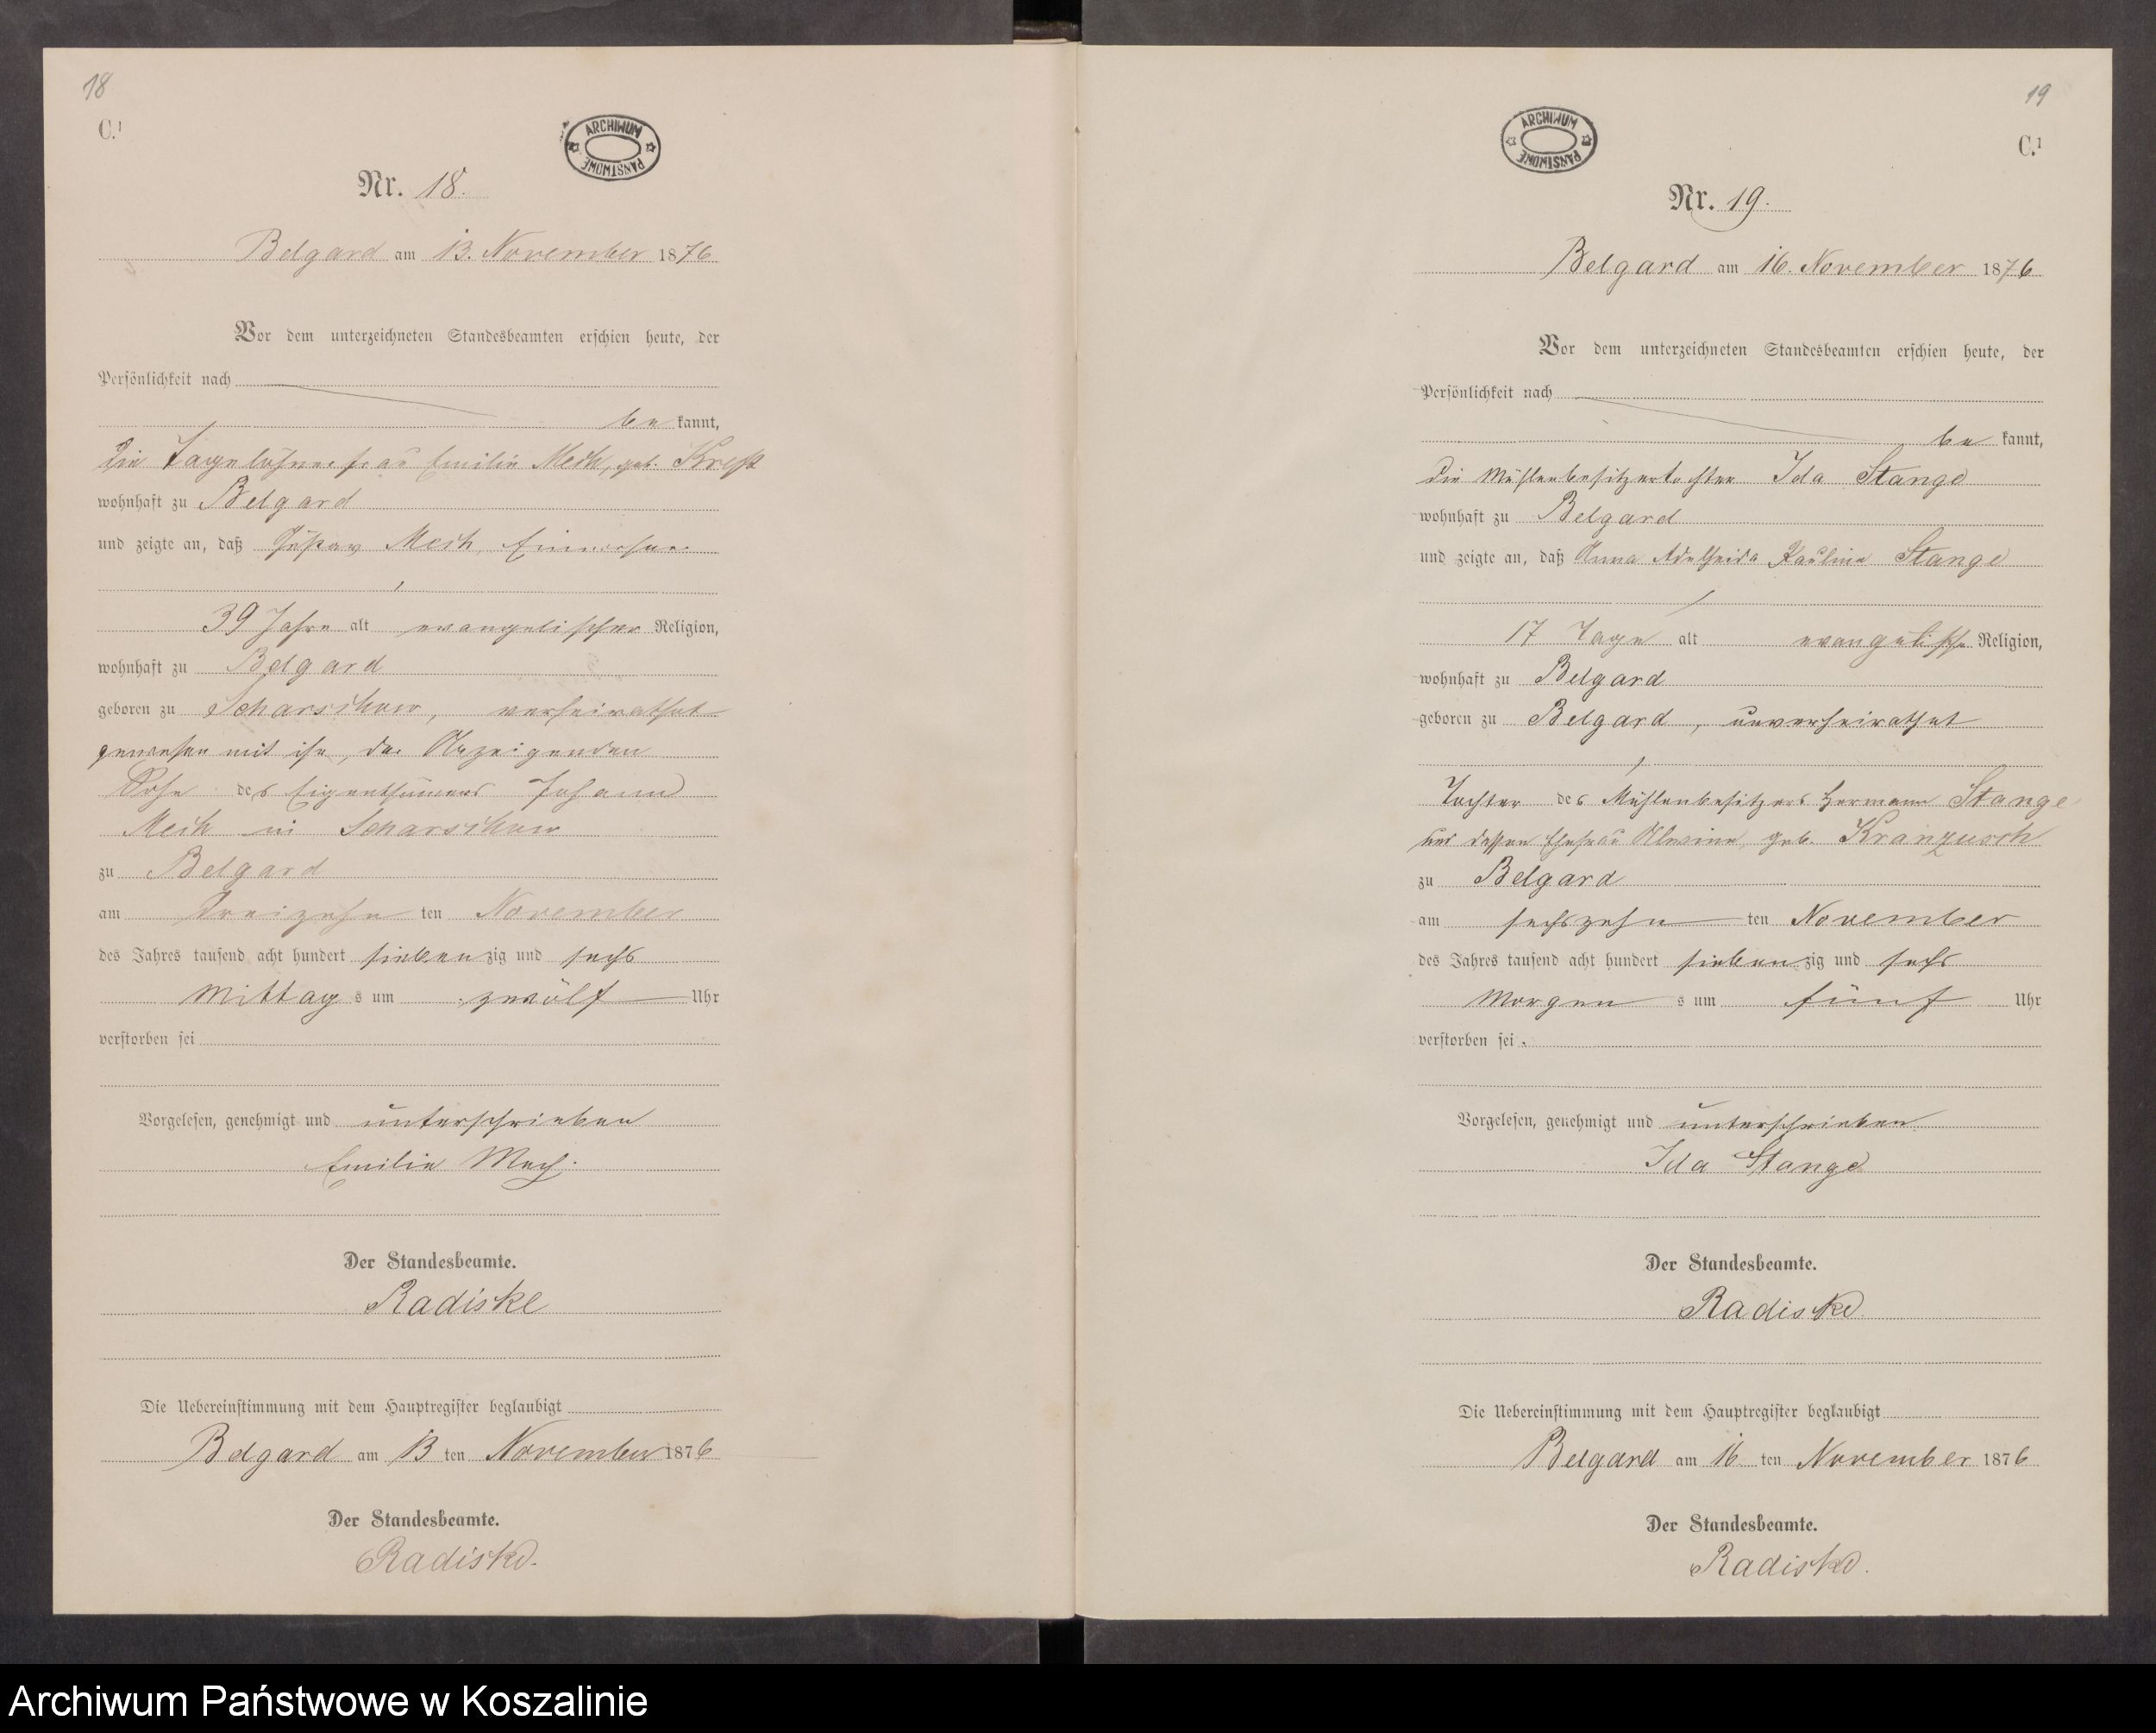 18
C.¹
ARCHIWUM PAŃSTWOWE
Nr. 18.
Belgard am 13. November 1876
Vor dem unterzeichneten Standesbeamten erschien heute, der
Persönlichkeit nach
be kannt,
die Tagelöhnerfrau Emilie Mech, geb.
wohnhaft zu Belgard
und zeigte an, daß Gustav Mech, Einwohner
39 Jahre alt evangelischer Religion,
wohnhaft zu Belgard
geboren zu verheirathet
gewesen mit ihr, der Anzeigenden
Sohn des Eigenthümers Johann
Mech in
zu Belgard
am dreizehn ten November
des Jahres tausend acht hundert siebenzig und sechs
Mittag s um zwölf Uhr
verstorben sei
Vorgelesen, genehmigt und unterschrieben
Emilie Mech.
Der Standesbeamte.
Radiske
Die Uebereinstimmung mit dem Hauptregister beglaubigt
Belgard am 13 ten November 1876
Der Standesbeamte.
Radiske.
19
C.¹
ARCHIWUM PAŃSTWOWE
Nr. 19.
Belgard am 16. November 1876
Vor dem unterzeichneten Standesbeamten erschien heute, der
Persönlichkeit nach
be kannt,
die Mühlenbesitzertochter Ida Stange
wohnhaft zu Belgard
und zeigte an, daß Anna Adelheida Pauline Stange
17 Tage alt evangelische Religion,
wohnhaft zu Belgard
geboren zu Belgard, unverheirathet
Tochter des Mühlenbesitzers Hermann Stange
und dessen Ehefrau Alwine, geb.
zu Belgard
am sechszehn ten November
des Jahres tausend acht hundert siebenzig und sechs
Morgen s um fünf Uhr
verstorben sei.
Vorgelesen, genehmigt und unterschrieben
Ida Stange
Der Standesbeamte.
Radiske.
Die Uebereinstimmung mit dem Hauptregister beglaubigt
Belgard am 16 ten November 1876
Der Standesbeamte.
Radiske.
Archiwum Państwowe w Koszalinie